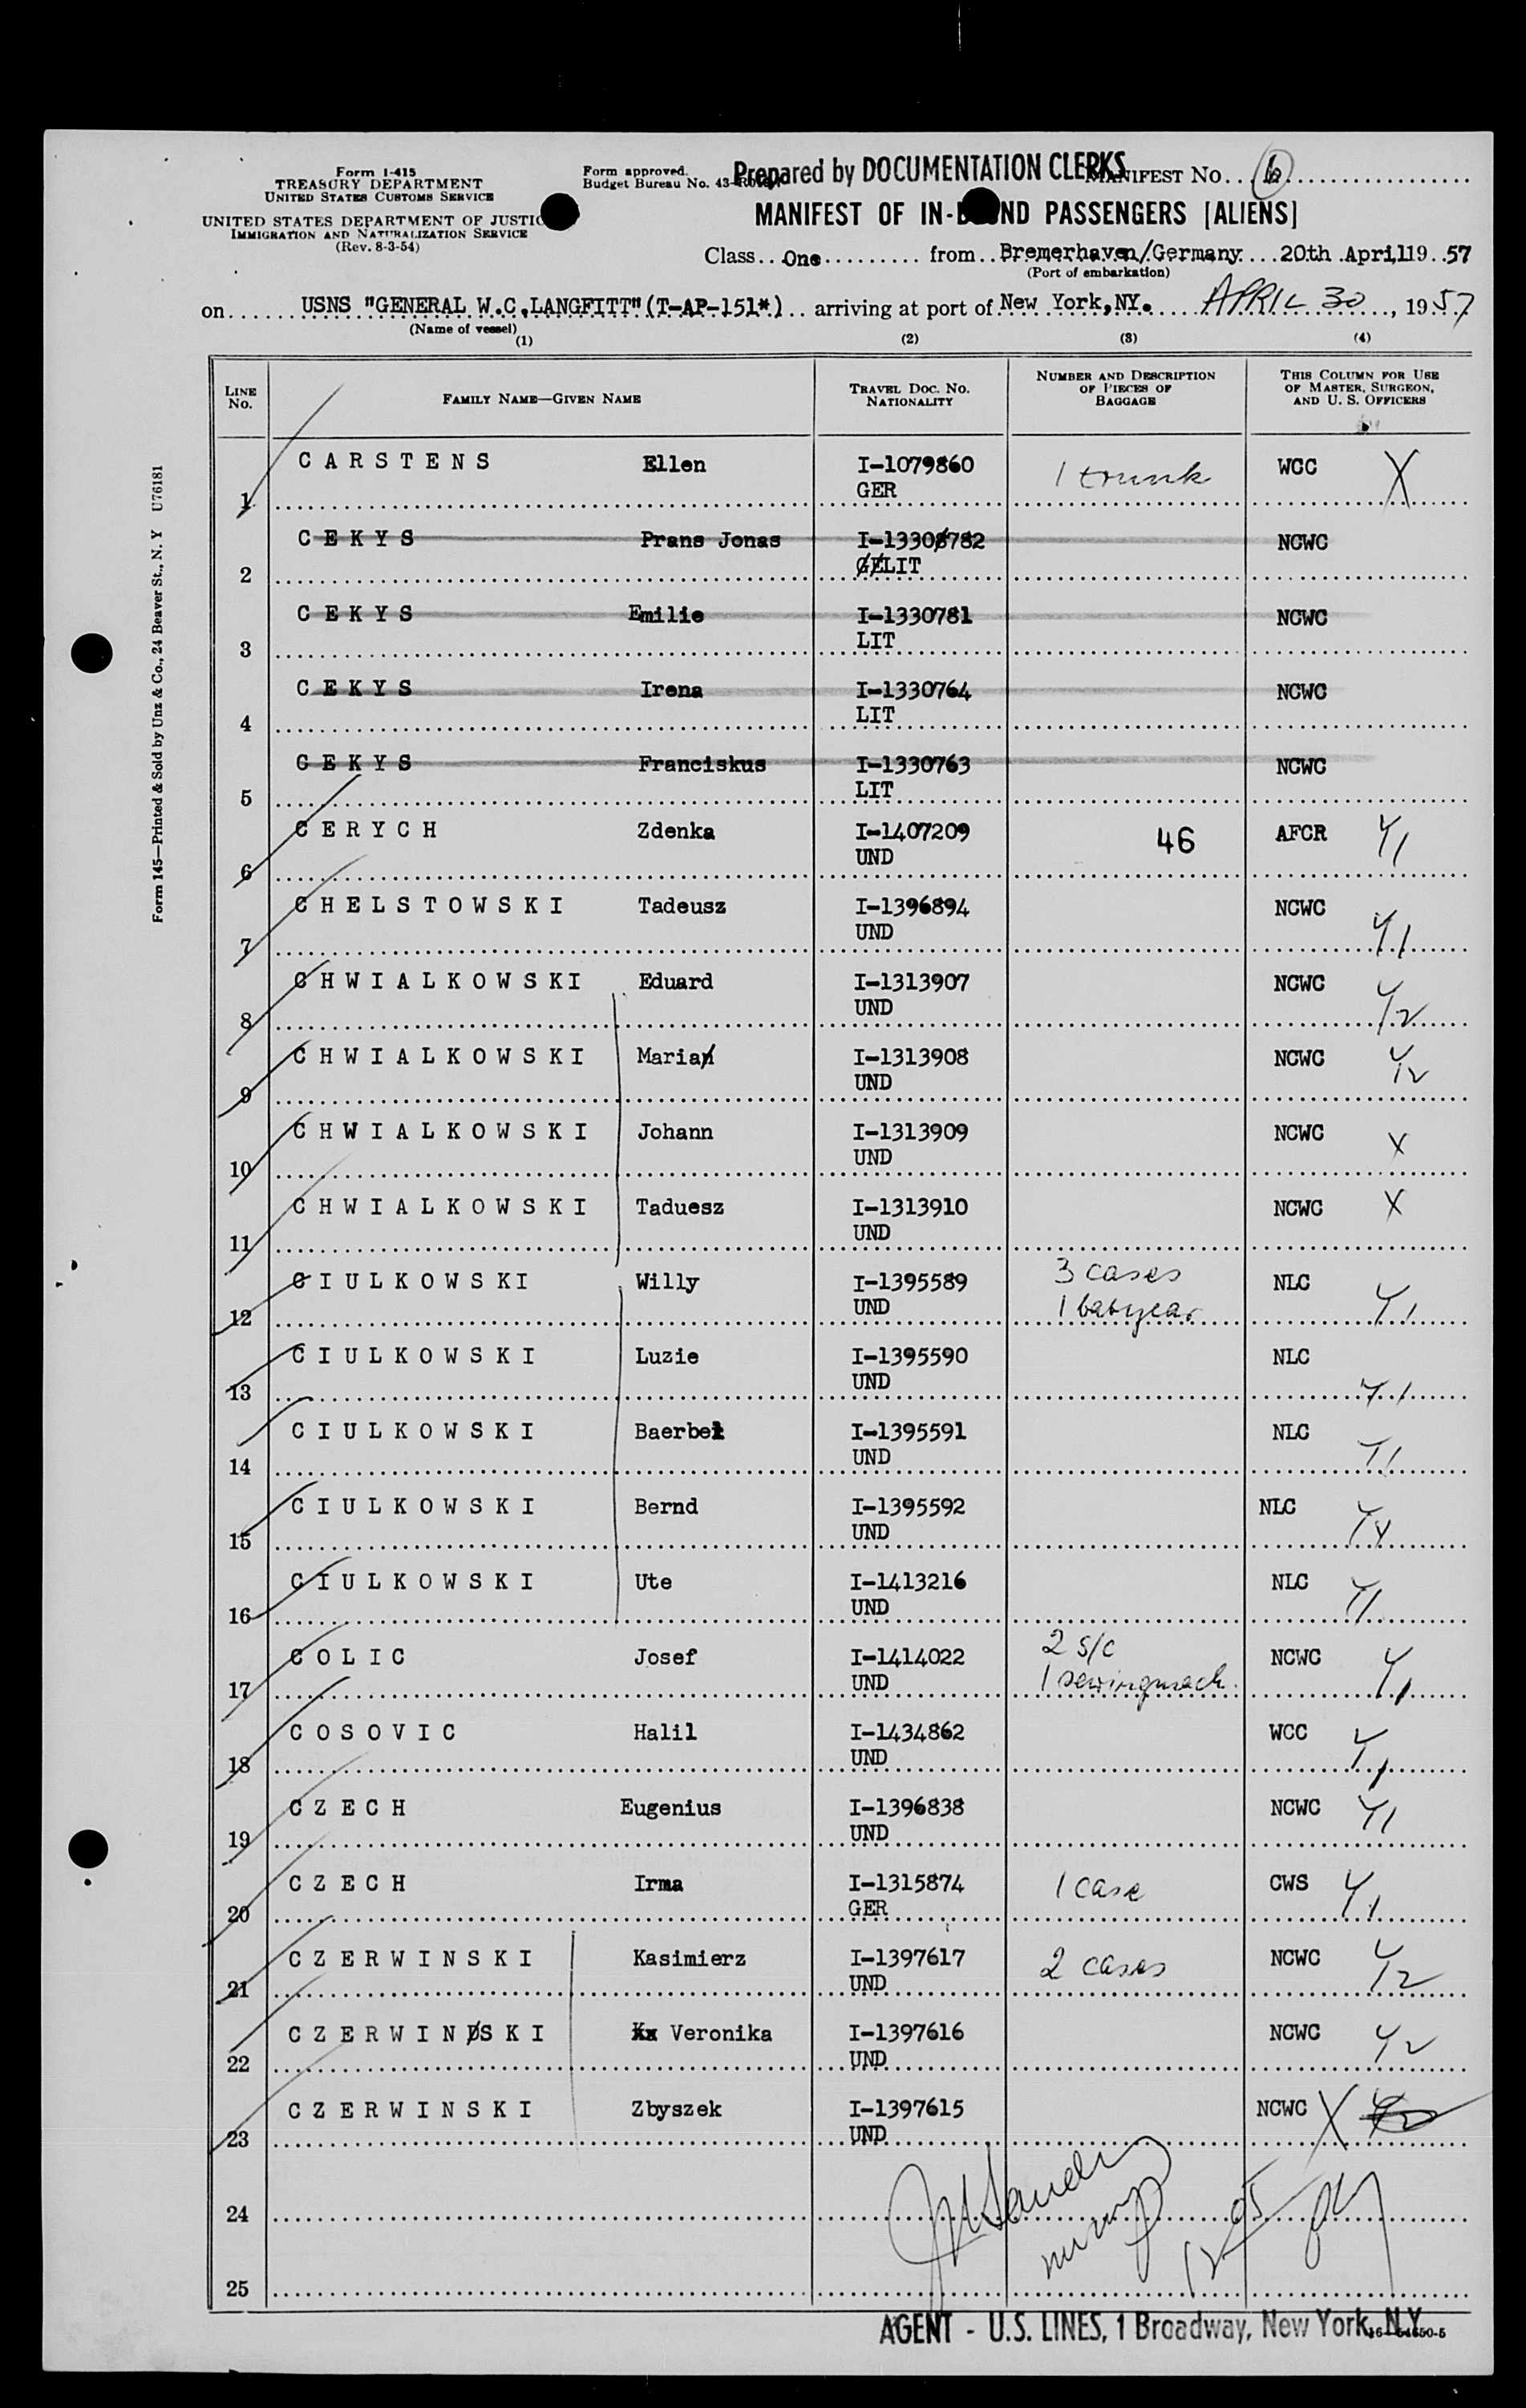 Form I-415
TREASURY DEPARTMENT
UNITED STATES CUSTOMS SERVICE
UNITED STATES DEPARTMENT OF JUSTIC
IMMIGRATION AND NATURALIZATION SERVICE
(Rev. 8-3-54)
Form approved.
Budget Bureau No. 43-
Prepared by DOCUMENTATION CLERKS
MANIFEST NO. 6
MANIFEST OF IN-BOUND PASSENGERS [ALIENS]
Class One from Bremerhaven/Germany 20th April 19 57
(Port of embarkation)
on USNS "GENERAL W.C.LANGFITT" (T-AP-151*) arriving at port of New York,NY. APRIL 30, 1957
(Name of vessel)
(1) (2) (3) (4)
LINE NO. FAMILY NAME—GIVEN NAME TRAVEL DOC. NO. NATIONALITY NUMBER AND DESCRIPTION OF PIECES OF BAGGAGE THIS COLUMN FOR USE OF MASTER, SURGEON, AND U. S. OFFICERS
1 CARSTENS Ellen I-1079860 1 trunk WCC X
GER
2 CEKYS Prans Jonas I-13308782 NCWC
GELIT
3 CEKYS Emilie I-1330781 NCWC
LIT
4 CEKYS Irena I-1330764 NCWC
LIT
5 CEKYS Franciskus I-1330763 NCWC
LIT
6 CERYCH Zdenka I-1407209 46 AFCR Y/1
UND
7 CHELSTOWSKI Tadeusz I-1396894 NCWC Y/1
UND
8 CHWIALKOWSKI Eduard I-1313907 NCWC Y/2
UND
9 CHWIALKOWSKI Marian I-1313908 NCWC Y/2
UND
10 CHWIALKOWSKI Johann I-1313909 NCWC X
UND
11 CHWIALKOWSKI Taduesz I-1313910 NCWC X
UND
12 CIULKOWSKI Willy I-1395589 3 cases NLC Y/1
UND 1 babycar
13 CIULKOWSKI Luzie I-1395590 NLC Y/1
UND
14 CIULKOWSKI Baerbel I-1395591 NLC Y/1
UND
15 CIULKOWSKI Bernd I-1395592 NLC
UND
16 CIULKOWSKI Ute I-1413216 NLC Y/1
UND
17 COLIC Josef I-1414022 2 s/c NCWC Y/1
UND 1 sewingmach.
18 COSOVIC Halil I-1434862 WCC Y/1
UND
19 CZECH Eugenius I-1396838 NCWC Y/1
UND
20 CZECH Irma I-1315874 1 case CWS Y/1
GER
21 CZERWINSKI Kasimierz I-1397617 2 cases NCWC Y/2
UND
22 CZERWINSKI Veronika I-1397616 NCWC Y/2
UND
23 CZERWINSKI Zbyszek I-1397615 NCWC X
UND
24
25
AGENT - U.S. LINES, 1 Broadway, New York, N.Y.
Form 145—Printed & Sold by Unz & Co., 24 Beaver St., N. Y U76181